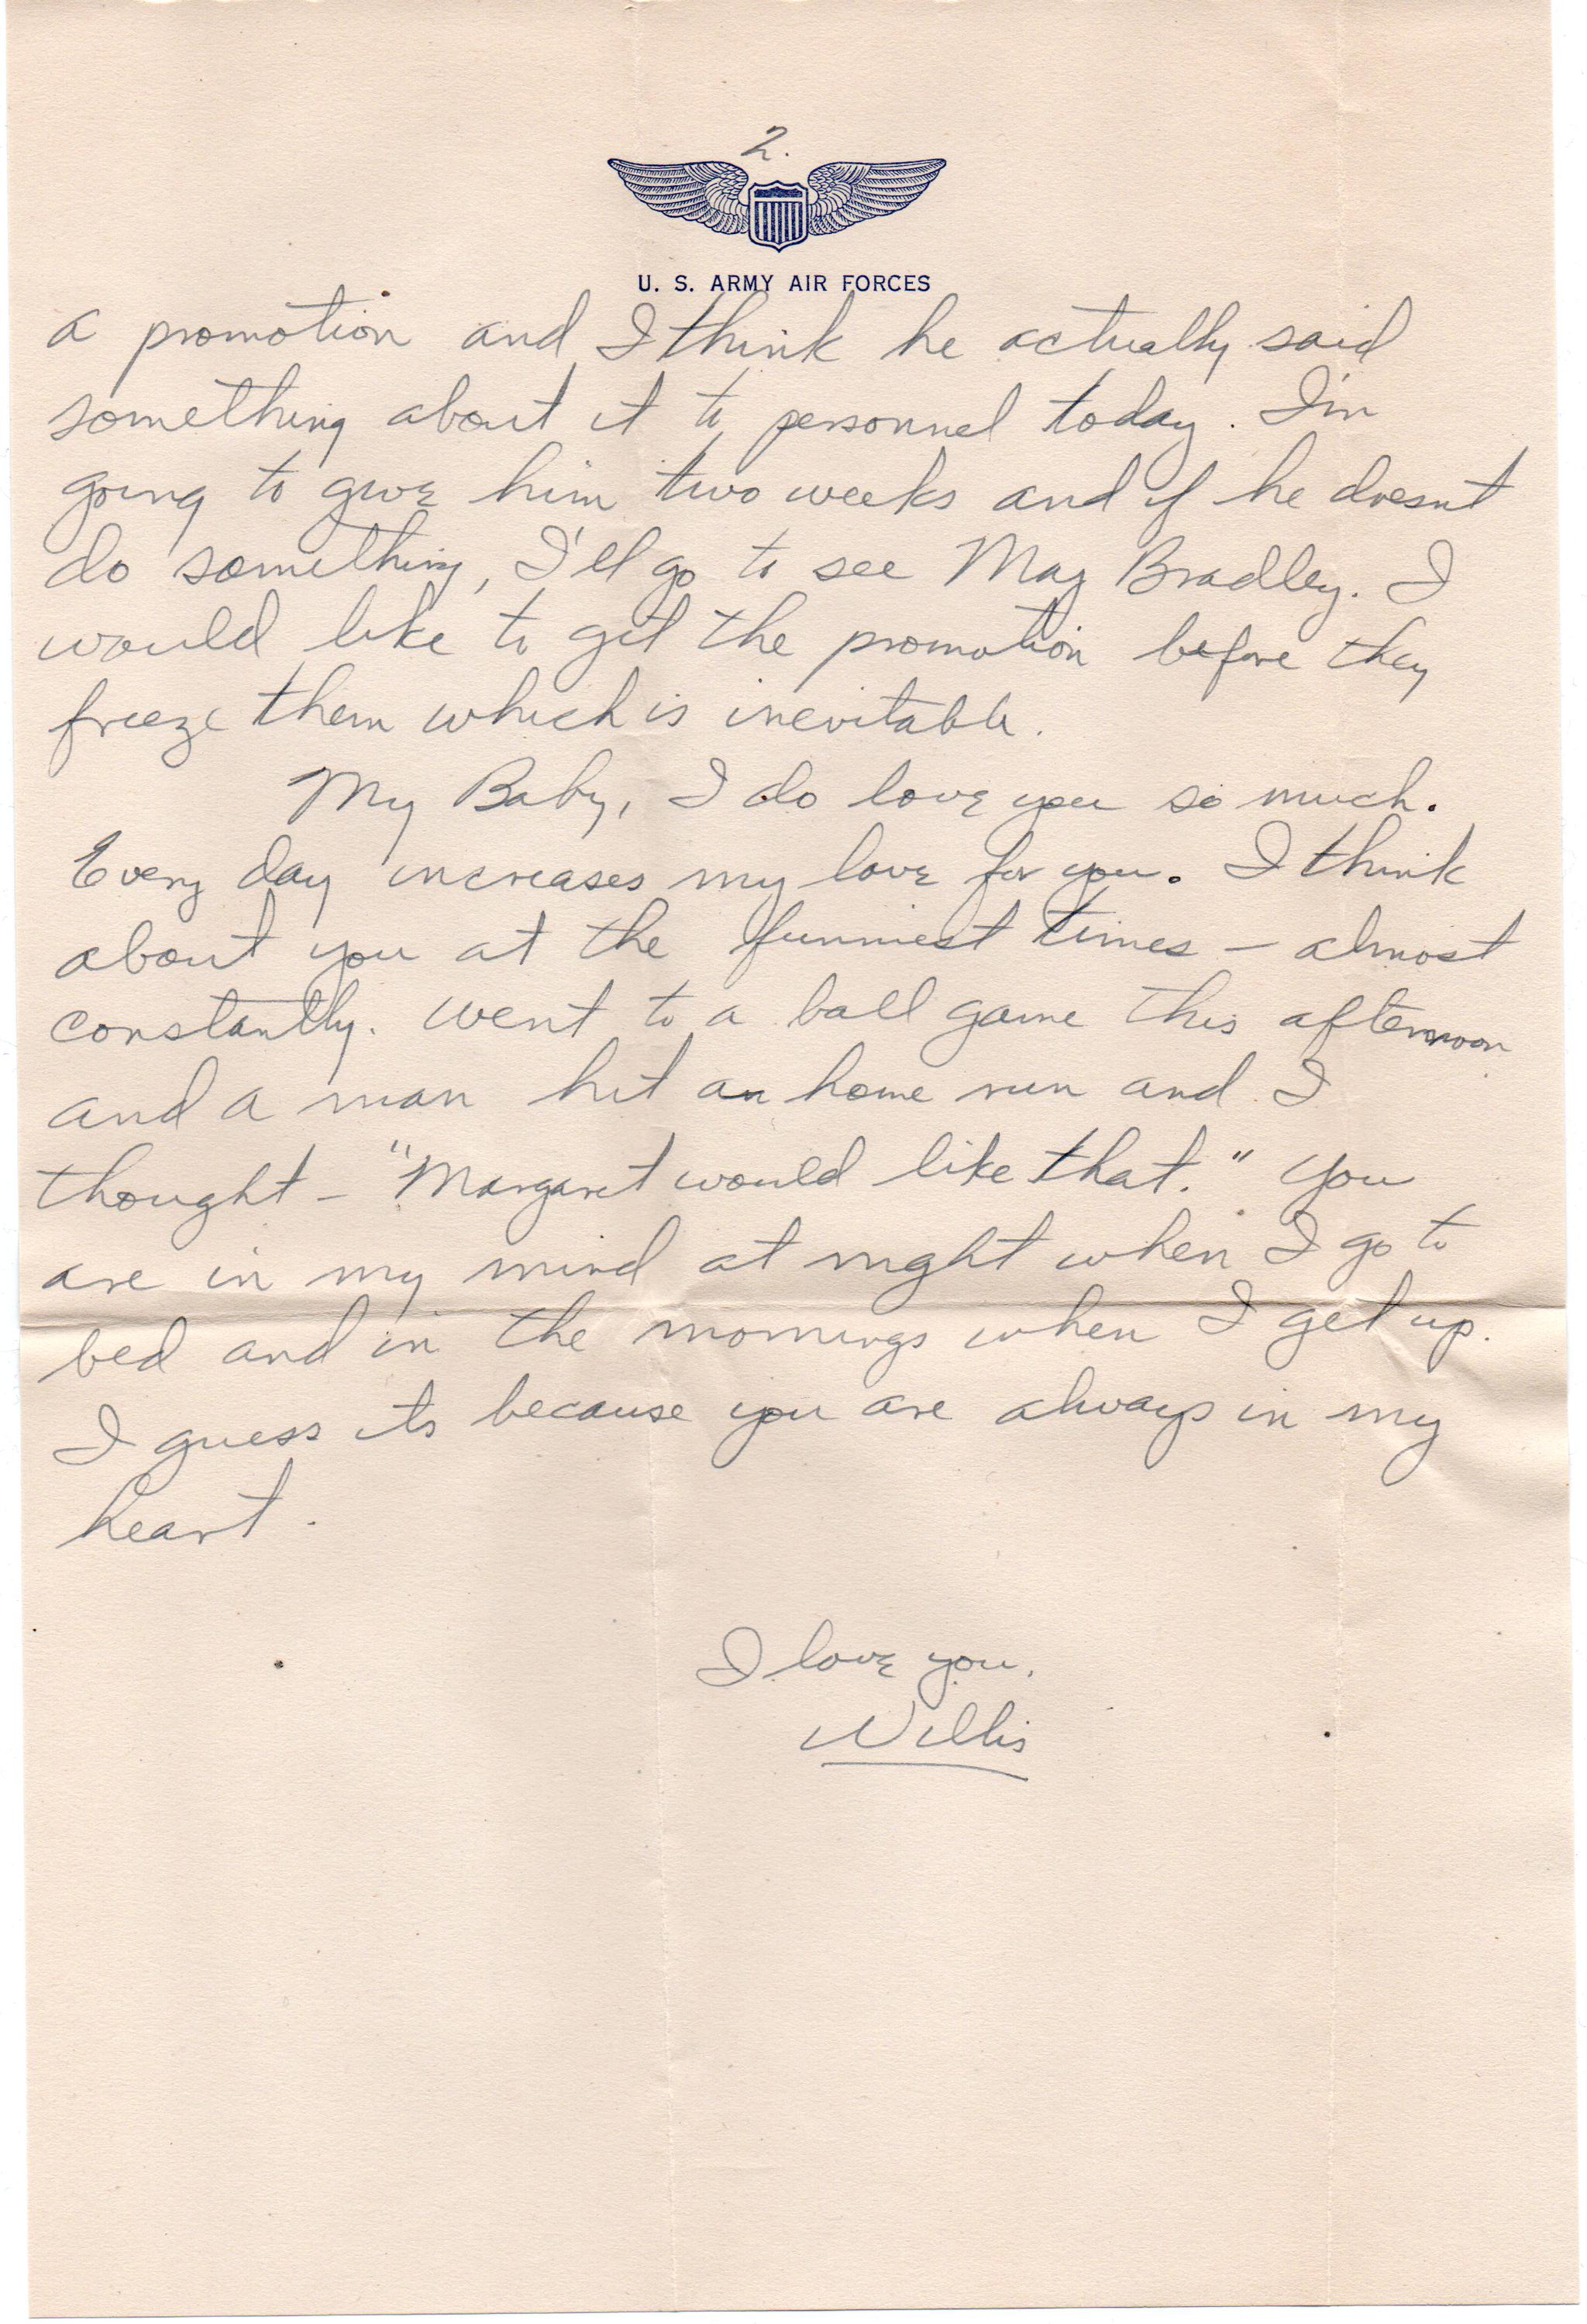 2.
U. S. ARMY AIR FORCES
a promotion and I think he actually said
something about it to personnel today. I'm
going to give him two weeks and if he doesnt
do something, I'll go to see Maj Bradley. I
would like to get the promotion before they
freeze them which is inevitable.
My Baby, I do love you so much.
Every day increases my love for you. I think
about you at the funniest times – almost
constantly. Went to a ball game this afternoon
and a man hit a home run and I
thought – "Margaret would like that." You
are in my mind at night when I go to
bed and in the mornings when I get up.
I guess its because you are always in my
heart.
I love you.
Willis